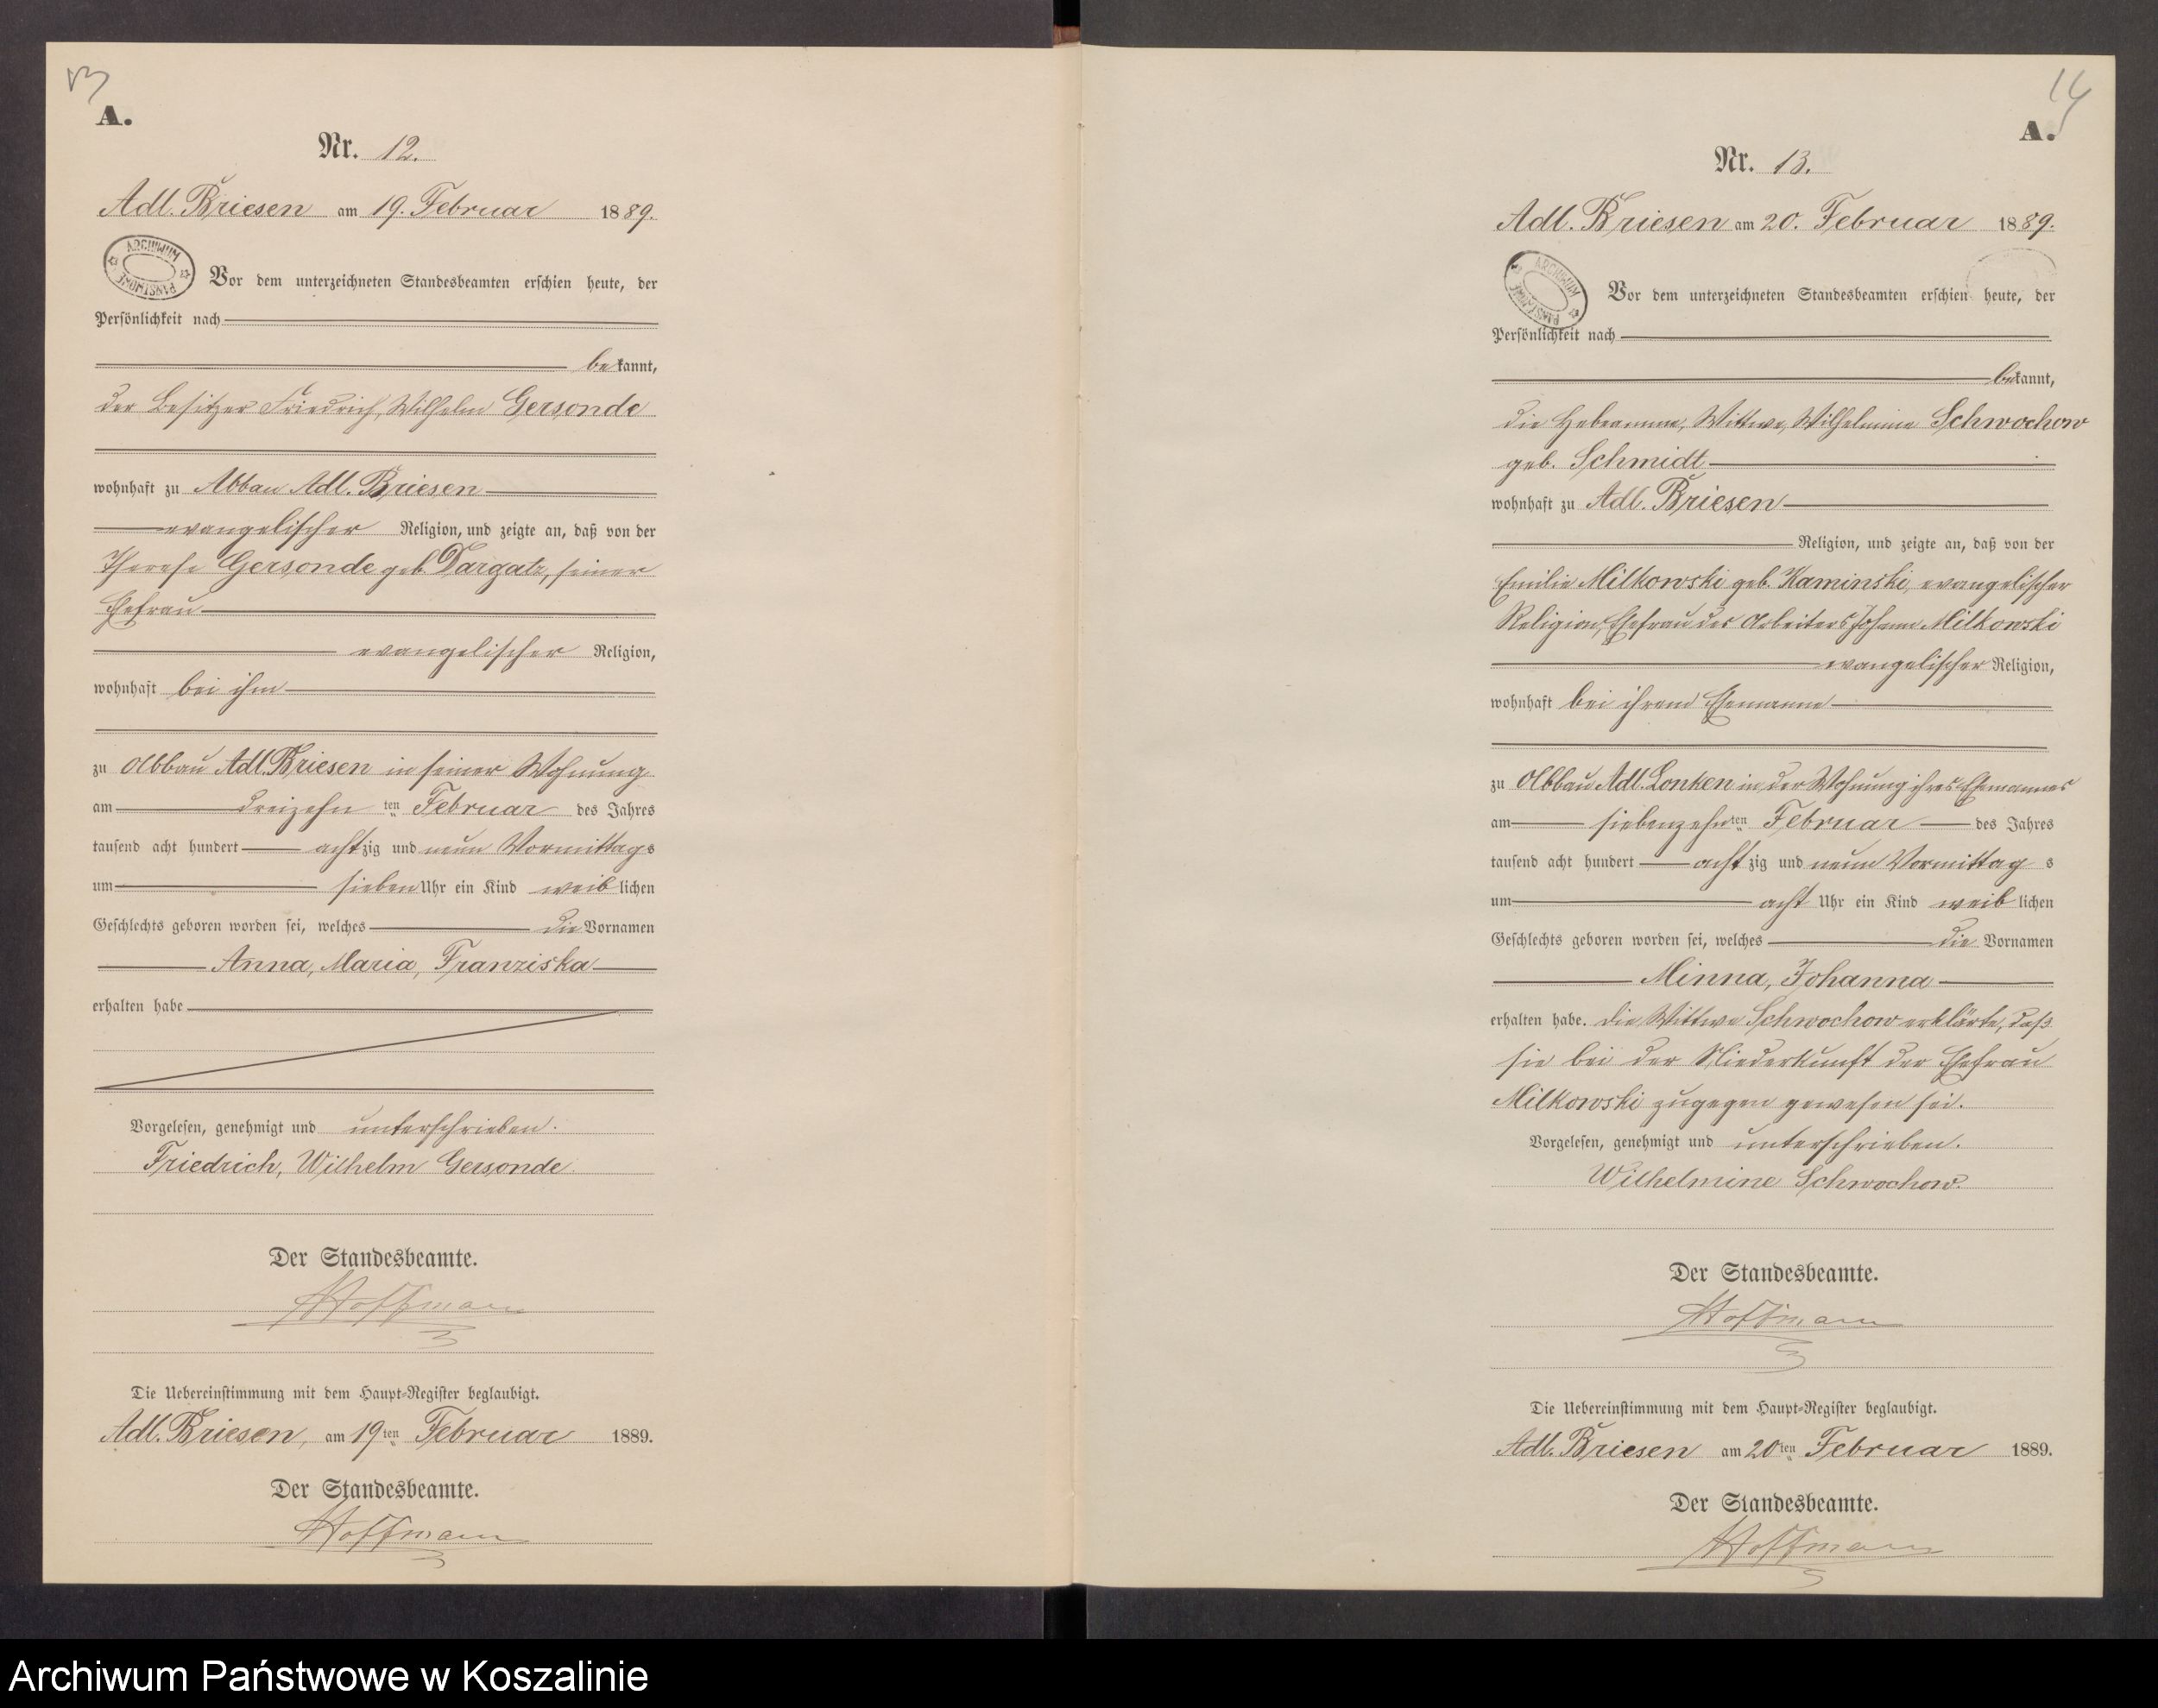 13
A.
Nr. 12.
Adl. Briesen am 19. Februar 1889.
ARCHIWUM PAŃSTWOWE
Vor dem unterzeichneten Standesbeamten erschien heute, der
Persönlichkeit nach
bekannt,
der Besitzer Friedrich, Wilhelm Gersonde
wohnhaft zu Abbau Adl. Briesen
evangelischer Religion, und zeigte an, daß von der
Therese Gersonde geb. Dargatz, seiner
Ehefrau
evangelischer Religion,
wohnhaft bei ihm
zu Abbau Adl. Briesen in seiner Wohnung
am dreizehn ten Februar des Jahres
tausend acht hundert achtzig und neun Vormittags
um sieben Uhr ein Kind weiblichen
Geschlechts geboren worden sei, welches die Vornamen
Anna, Maria, Franziska
erhalten habe
Vorgelesen, genehmigt und unterschrieben.
Friedrich, Wilhelm Gersonde.
Der Standesbeamte.
Hoffmann
Die Uebereinstimmung mit dem Haupt-Register beglaubigt.
Adl. Briesen, am 19ten Februar 1889.
Der Standesbeamte.
Hoffmann
14
A.
Nr. 13.
Adl. Briesen am 20. Februar 1889.
ARCHIWUM PAŃSTWOWE
Vor dem unterzeichneten Standesbeamten erschien heute, der
Persönlichkeit nach
bekannt,
die Hebeamme, Wittwe, Wilhelmine Schwochow
geb. Schmidt
wohnhaft zu Adl. Briesen
Religion, und zeigte an, daß von der
Emilie Milkowski geb. Kaminski, evangelischer
Religion, Ehefrau des Arbeiters Johann Milkowski
evangelischer Religion,
wohnhaft bei ihrem Ehemanne
zu Abbau Adl. Lonken in der Wohnung ihres Ehemannes
am siebenzehn ten Februar des Jahres
tausend acht hundert achtzig und neun Vormittag s
um acht Uhr ein Kind weiblichen
Geschlechts geboren worden sei, welches die Vornamen
Minna, Johanna
erhalten habe. Die Wittwe Schwochow erklärte, daß
sie bei der Niederkunft der Ehefrau
Milkowski zugegen gewesen sei.
Vorgelesen, genehmigt und unterschrieben.
Wilhelmine Schwochow.
Der Standesbeamte.
Hoffmann
Die Uebereinstimmung mit dem Haupt-Register beglaubigt.
Adl. Briesen am 20ten Februar 1889.
Der Standesbeamte.
Hoffmann
Archiwum Państwowe w Koszalinie